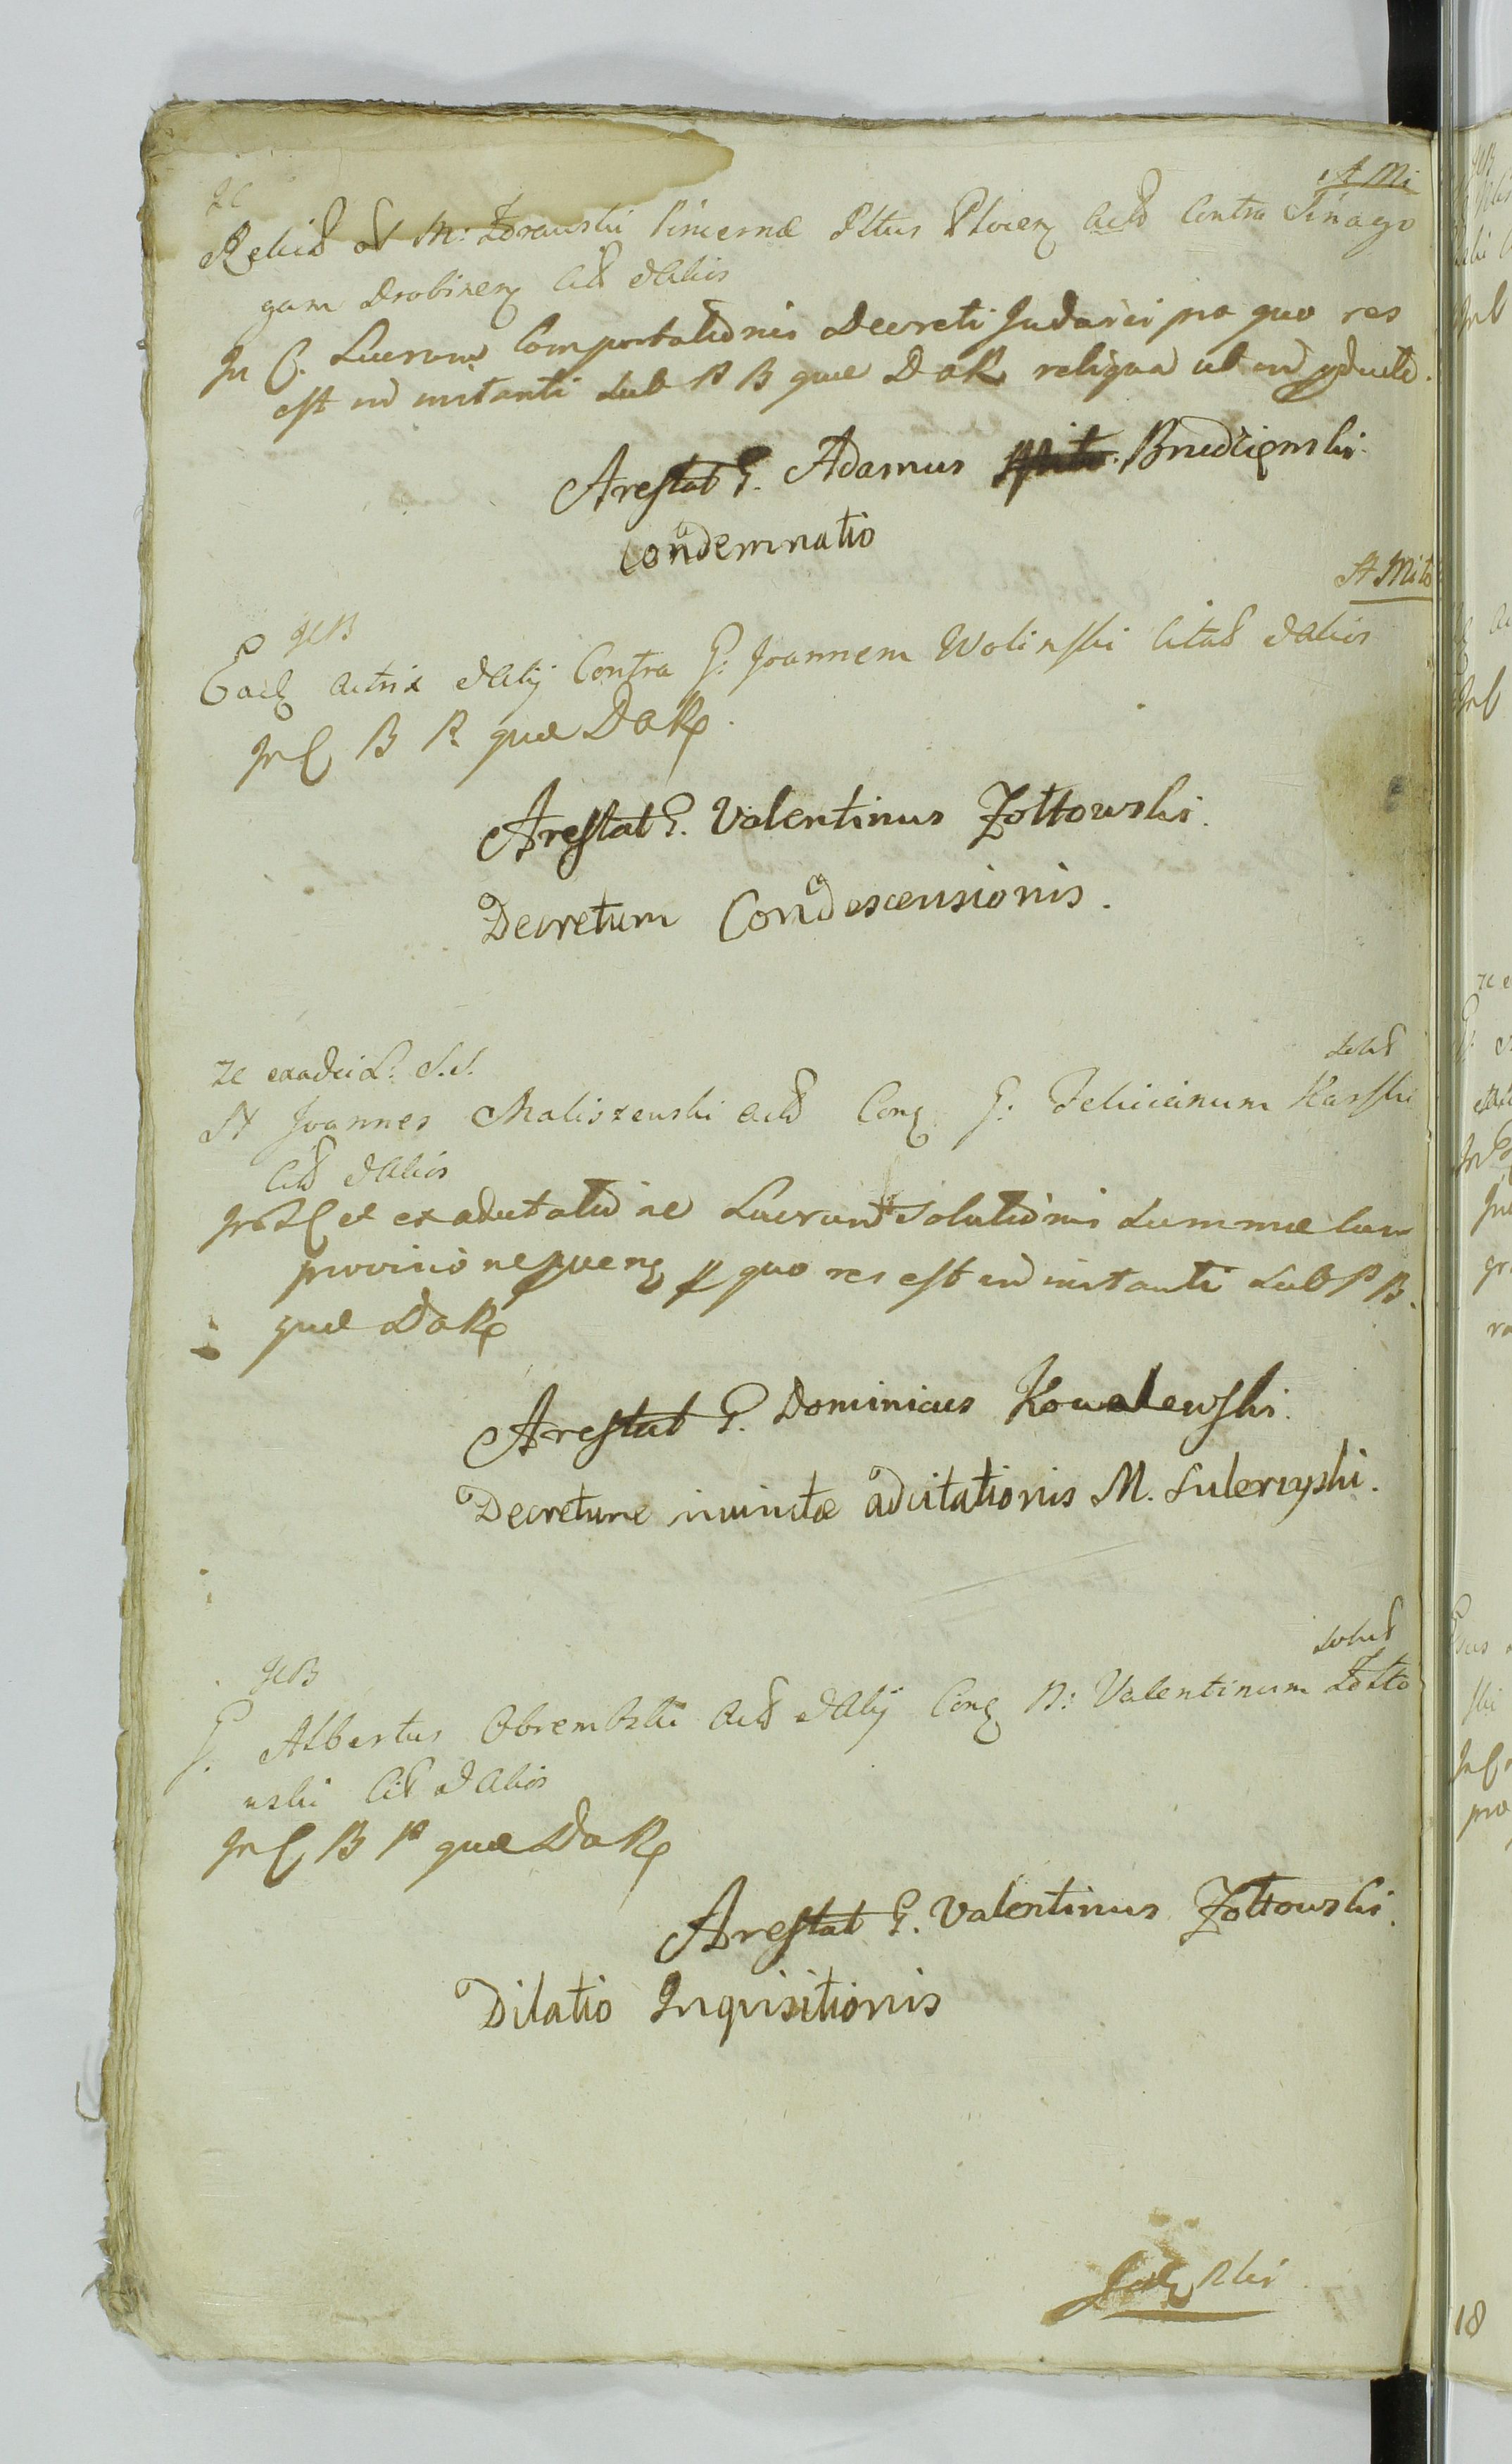 A Mi
Relict ol M: Zorawski Pincernæ Pttus Plocen Actt Contra Sinago
gam Drobinen Citt et Alios
In C. Lucrum Comportationis Decreti Judarii pro quo res
est ind instanti sub P B quæ D a R reliqua ut ind
Arestat G. Adamus Brudzienski
Condemnatio
A Mito
JCB
Ead Actrix et Alij Contra G: Joannem Wolinski Citat et Alios
In C B P quæ D a R
Arestat G. Valentinus Zołtowski.
Decretum Condescensionis.
ze exadcit. S.S.
Solut
Joannes Maliszewski Actt Con G. Felicianum Karski
Citt et Alios
et exadcitatione Lucrum Solutionis Summæ cum
provisione quo res est ind instanti sub P B.
quæ D a R
Arestat G. Dominicus Kowalewski.
Decretum adcitationis M. Sulerzyski.
JCB
Solut
G. Albertus Obrembski Actt et Alij Con N: Valentinum Zołto
wski Citt et Alios
In C B P quæ D a R
Arestat G. Valentinus Zołtowski.
Dilatio Inquisitionis